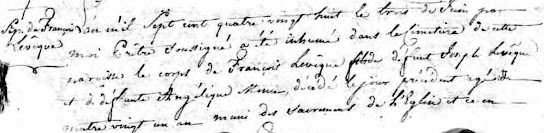 Sep. de François Lévêque
L'an mil Sept cent quatre vingt huit le trois de Juin par
moi Prêtre Soussigné a été inhumé dans le cimetière de cette
paroisse le corps de François Levêque fils de défunt Joseph Levêque
et de défunte Angélique décédé le jour précédent agé de
quatre vingt un an muni des Sacremens de l'Eglise et ce en